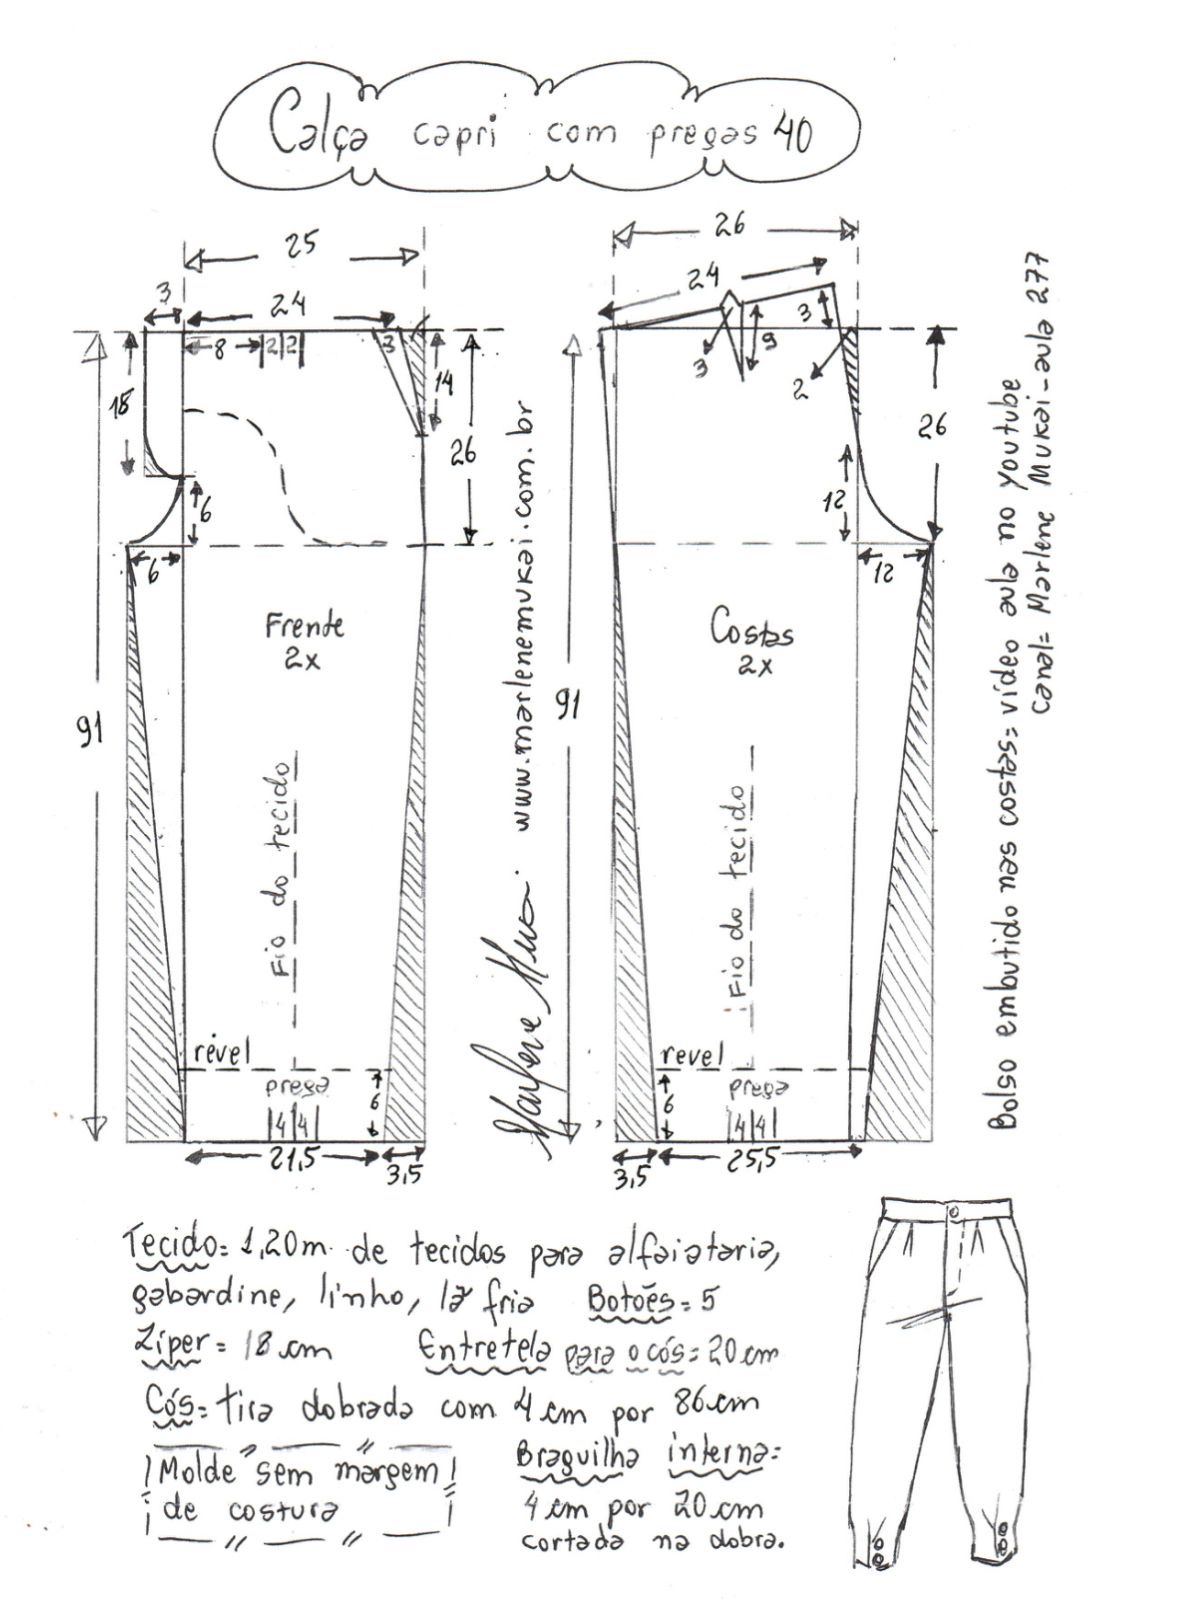 Calça capri com pregas 40
25
3
24
8
2
2
3
14
18
26
6
6
91
Frente
2x
Fio do tecido
revel
prega
6
4
4
21,5
3,5
www.marlenemukai.com.br
26
24
3
9
3
2
26
12
12
91
Costas
2x
Fio do tecido
revel
prega
6
4
4
3,5
25,5
Bolso embutido nas costas= vídeo aula no youtube
canal= Marlene Mukai-aula 277
Tecido= 1,20m de tecidos para alfaiataria,
gabardine, linho, lã fria Botões= 5
Zíper= 18 cm Entretela para o cós= 20 cm
Cós= tira dobrada com 4 cm por 86cm
Molde sem margem
de costura
Braguilha interna:
4 cm por 20 cm
cortada na dobra.